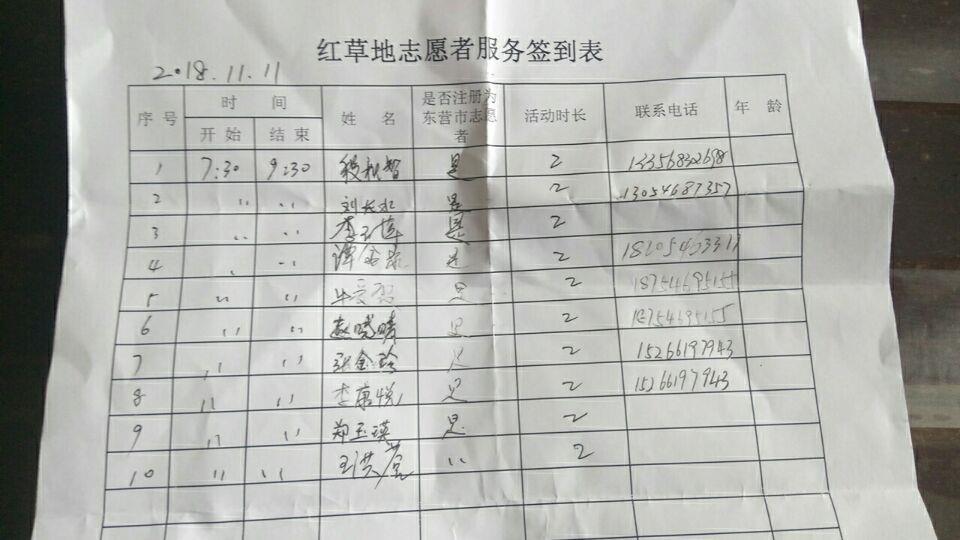 红草地志愿者服务签到表
2018.11.11
序号 时间 姓名 是否注册为东营市志愿者 活动时长 联系电话 年龄
开始 结束
1 7:30 9:30 是 2 13356832698
2 〃 〃 刘长水 是 2 13054687357
3 〃 〃 是 2
4 〃 〃 是 2
5 〃 〃 是 2 18754695155
6 〃 〃 赵晴晴 是 2 18754695155
7 〃 〃 张金玲 是 2 15266197943
8 〃 〃 李康悦 是 2 15266197943
9 〃 〃 郑玉瑛 是 2
10 〃 〃 〃 2